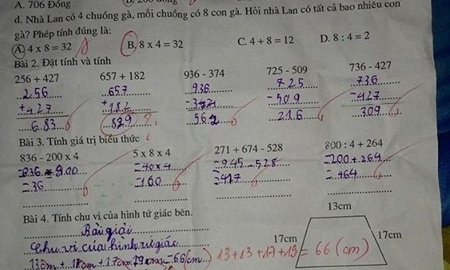 A. 706 Đồng
d. Nhà Lan có 4 chuồng gà, mỗi chuồng có 8 con gà. Hỏi nhà Lan có tất cả bao nhiêu con
gà? Phép tính đúng là:
A. 4 x 8 = 32 B. 8 x 4 = 32 C. 4 + 8 = 12 D. 8 : 4 = 2
Bài 2. Đặt tính và tính
256 + 427 657 + 182 936 - 374 725 - 509 736 - 427
256 657 936 725 736
+ 427 + 182 - 509 - 427
683 562 216 309
Bài 3. Tính giá trị biểu thức
836 - 200 x 4 5 x 8 x 4 271 + 674 - 528 800 : 4 + 264
= 40 x 4 = 945 - 528 = 200 + 264
= 36 = 160 = 417 = 464
Bài 4. Tính chu vi của hình tứ giác bên.
13cm
Bài giải
Chu vi của hình tứ giác
17cm 17cm
13 + 13 + 17 + 13 = 66 (cm)